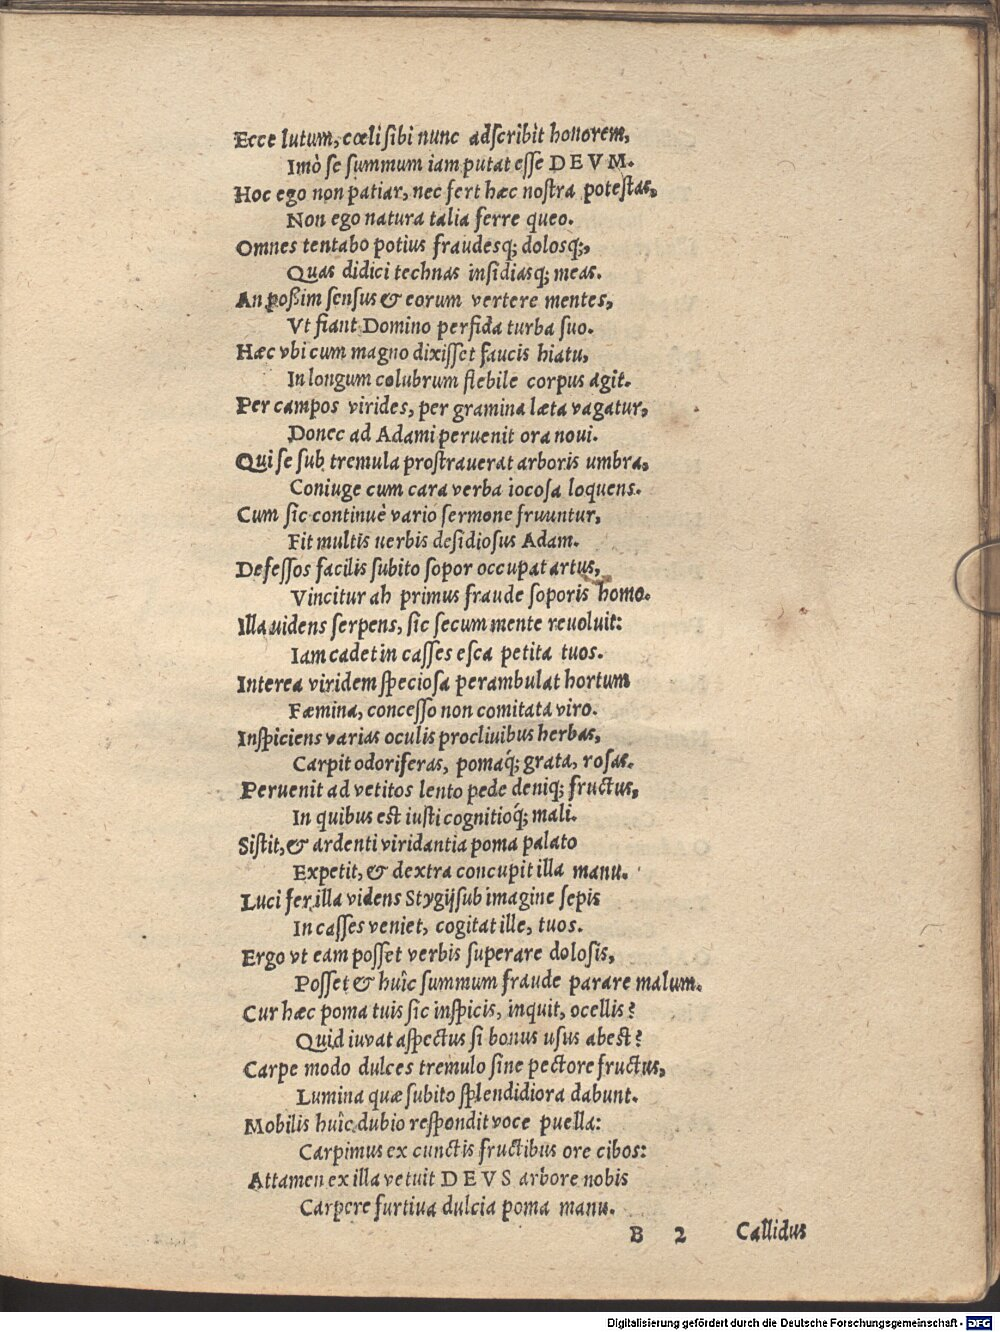 Ecce lutum, cœli sibi nunc adscribit honorem,
Imò se summum iam putat esse DEVM.
Hoc ego non patiar, nec fert hæc nostra potestas,
Non ego natura talia ferre queo.
Omnes tentabo potius fraudesq; dolosq;,
Quas didici technas insidiasq; meas.
An poßim sensus & eorum vertere mentes,
Vt fiant Domino perfida turba suo.
Hæc vbi cum magno dixisset faucis hiatu,
In longum colubrum flebile corpus agit.
Per campos virides, per gramina læta vagatur,
Donec ad Adami peruenit ora noui.
Qui se sub tremula prostrauerat arboris umbra,
Coniuge cum cara verba iocosa loquens.
Cum sic continuè vario sermone fruuntur,
Fit multis uerbis desidiosus Adam.
Defessos facilis subito sopor occupat artus,
Vincitur ah primus fraude soporis homo.
Illa uidens serpens, sic secum mente reuoluit:
Iam cadet in casses esca petita tuos.
Interea viridem speciosa perambulat hortum
Fæmina, concesso non comitata viro.
Inspiciens varias oculis procliuibus herbas,
Carpit odoriferas, pomaq́; grata, rosas.
Peruenit ad vetitos lento pede deniq; fructus,
In quibus est iusti cognitioq́; mali.
Sistit, & ardenti viridantia poma palato
Expetit, & dextra concupit illa manu.
Lucifer illa videns Stygij sub imagine sepis
In casses veniet, cogitat ille, tuos.
Ergo vt eam posset verbis superare dolosis,
Posset & huîc summum fraude parare malum.
Cur hæc poma tuis sic inspicis, inquit, ocellis?
Quid iuvat aspectus si bonus usus abest?
Carpe modo dulces tremulo sine pectore fructus,
Lumina quæ subito splendidiora dabunt.
Mobilis huîc dubio respondit voce puella:
Carpimus ex cunctis fructibus ore cibos:
Attamen ex illa vetuit DEVS arbore nobis
Carpere furtiua dulcia poma manu.
B 2 Callidus
Digitalisierung gefördert durch die Deutsche Forschungsgemeinschaft - DFG